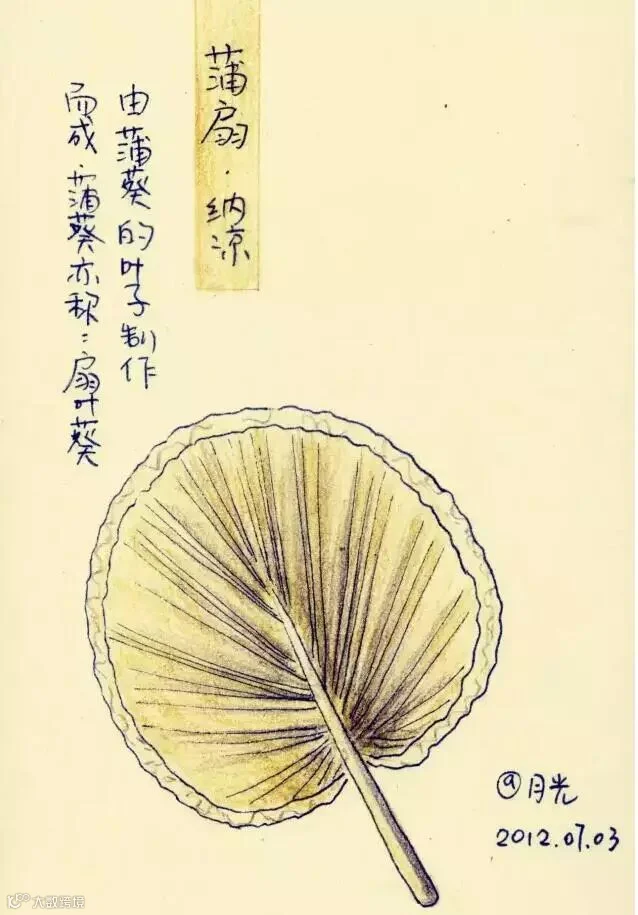 蒲扇·纳凉
由蒲葵的叶子制作
而成.蒲葵亦称:扇叶葵
@月光
2012.07.03
大数跨境